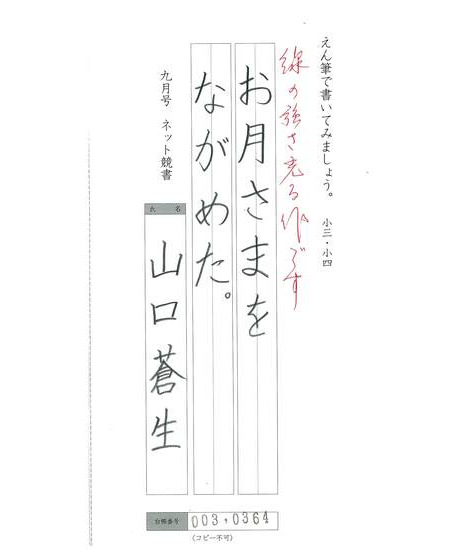 えん筆で書いてみましょう。 小三・小四
線の強さ光る作です
お月さまを
ながめた。
九月号 ネット競書
氏 名
山口蒼生
台帳番号 003,0364
(コピー不可)